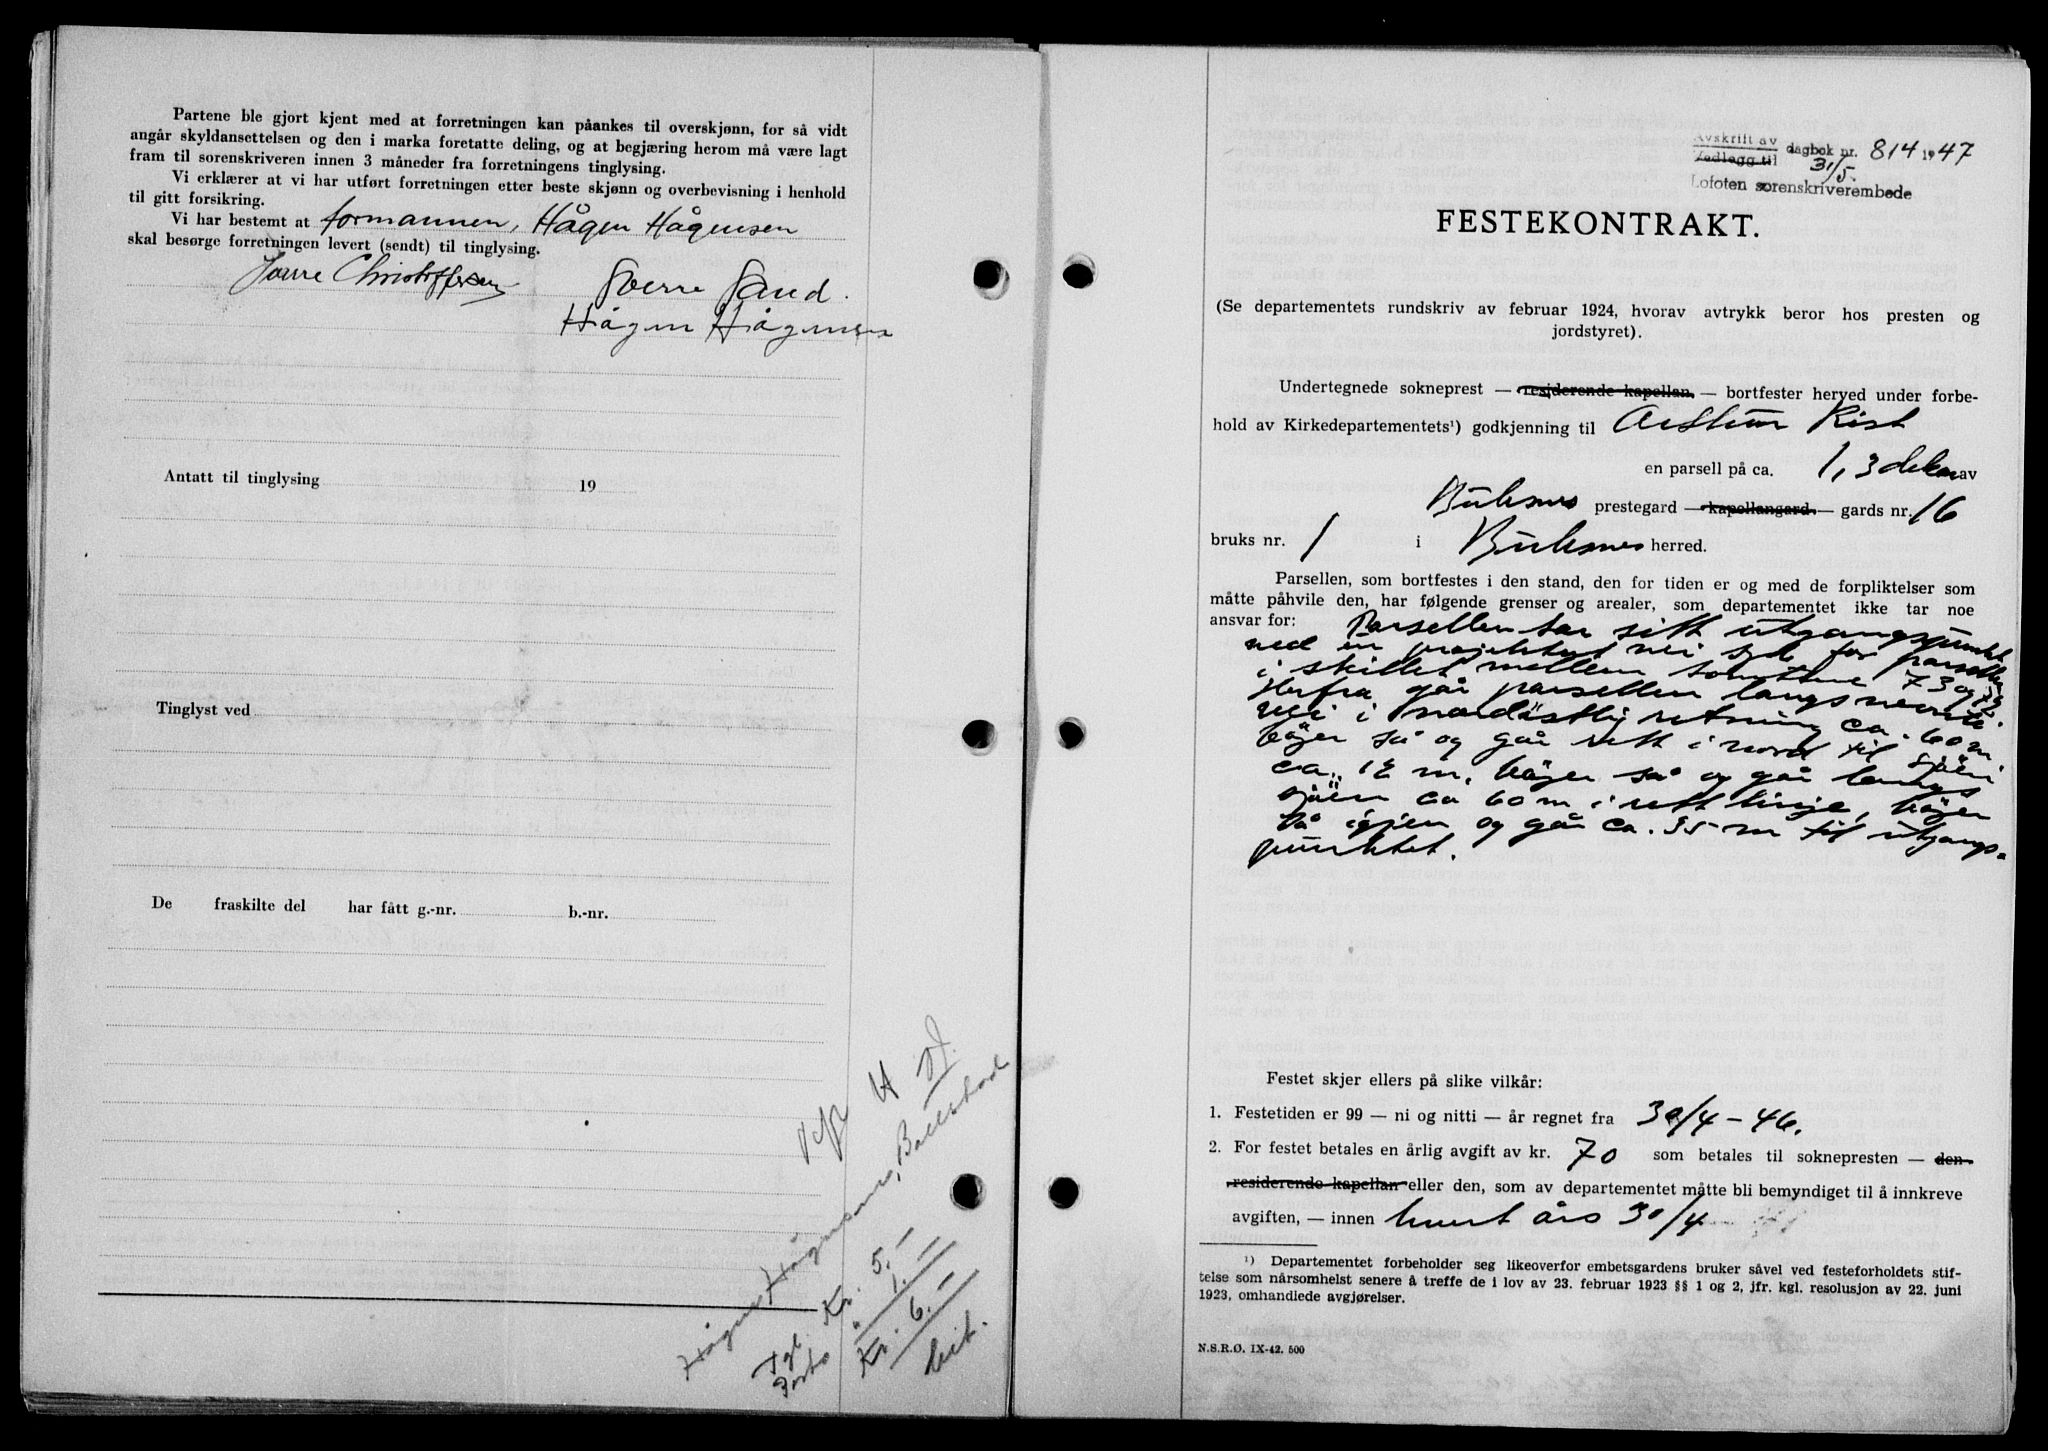 Partene ble gjort kjent med at forretningen kan påankes til overskjønn, for så vidt
angår skyldansettelsen og den i marka foretatte deling, og at begjæring herom må være lagt
fram til sorenskriveren innen 3 måneder fra forretningens tinglysing.
Vi erklærer at vi har utført forretningen etter beste skjønn og overbevisning i henhold
til gitt forsikring.
Vi har bestemt at formannen, Hågen Hågensen
skal besørge forretningen levert (sendt) til tinglysing.
Christoffersen Sverre Sand.
Hågen Hågensen
Antatt til tinglysing 19
Tinglyst ved
De fraskilte del har fått g.-nr. b.-nr.
Hågen Hågensen, Ballstad
Tgl. Kr. 5.-
Porto " 1.-
Kr. 6.-
Avskrift av
Vedlegg til dagbok nr. 814 1947
31/5.
Lofoten sorenskriverembede
FESTEKONTRAKT.
(Se departementets rundskriv av februar 1924, hvorav avtrykk beror hos presten og
jordstyret).
Undertegnede sokneprest — residerende kapellan — bortfester herved under forbe-
hold av Kirkedepartementets¹) godkjenning til Arthur Rist
en parsell på ca. 1,3 dekar av
Buksnes prestegard — kapellangard — gards nr. 16
bruks nr. 1 i Buksnes herred.
Parsellen, som bortfestes i den stand, den for tiden er og med de forpliktelser som
måtte påhvile den, har følgende grenser og arealer, som departementet ikke tar noe
ansvar for: Parsellen tar sitt utgangspunkt
ved en projektert vei syd for parsellen
i skillet mellem tomtene 73 og
Herfra går parsellen langs nevnte
vei i nordöstlig retning ca. 60 m.
böjer så og går rett i nord til sjöen
ca. 12 m. böjer så og går langs
sjöen ca 60 m i rett linje, böjer
så igjen og går ca. 35 m til utgangs-
punktet.
Festet skjer ellers på slike vilkår:
1. Festetiden er 99 — ni og nitti — år regnet fra 30/4 - 46.
2. For festet betales en årlig avgift av kr. 70 som betales til soknepresten — den
residerende kapellan eller den, som av departementet måtte bli bemyndiget til å innkreve
avgiften, — innen hvert års 30/4
¹) Departementet forbeholder seg likeoverfor embetsgardens bruker såvel ved festeforholdets stif-
telse som nårsomhelst senere å treffe de i lov av 23. februar 1923 §§ 1 og 2, jfr. kgl. resolusjon av 22. juni
1923, omhandlede avgjørelser.
N.S.R.Ø. IX-42. 500